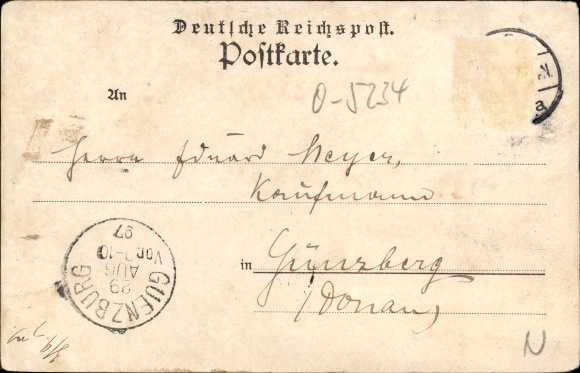 Deutsche Reichspost.
Postkarte.
An
O-5234
Herrn Eduard Meyer,
Kaufmann
in Günzberg
(Donau)
GUENZBURG
29
AUG
97
N